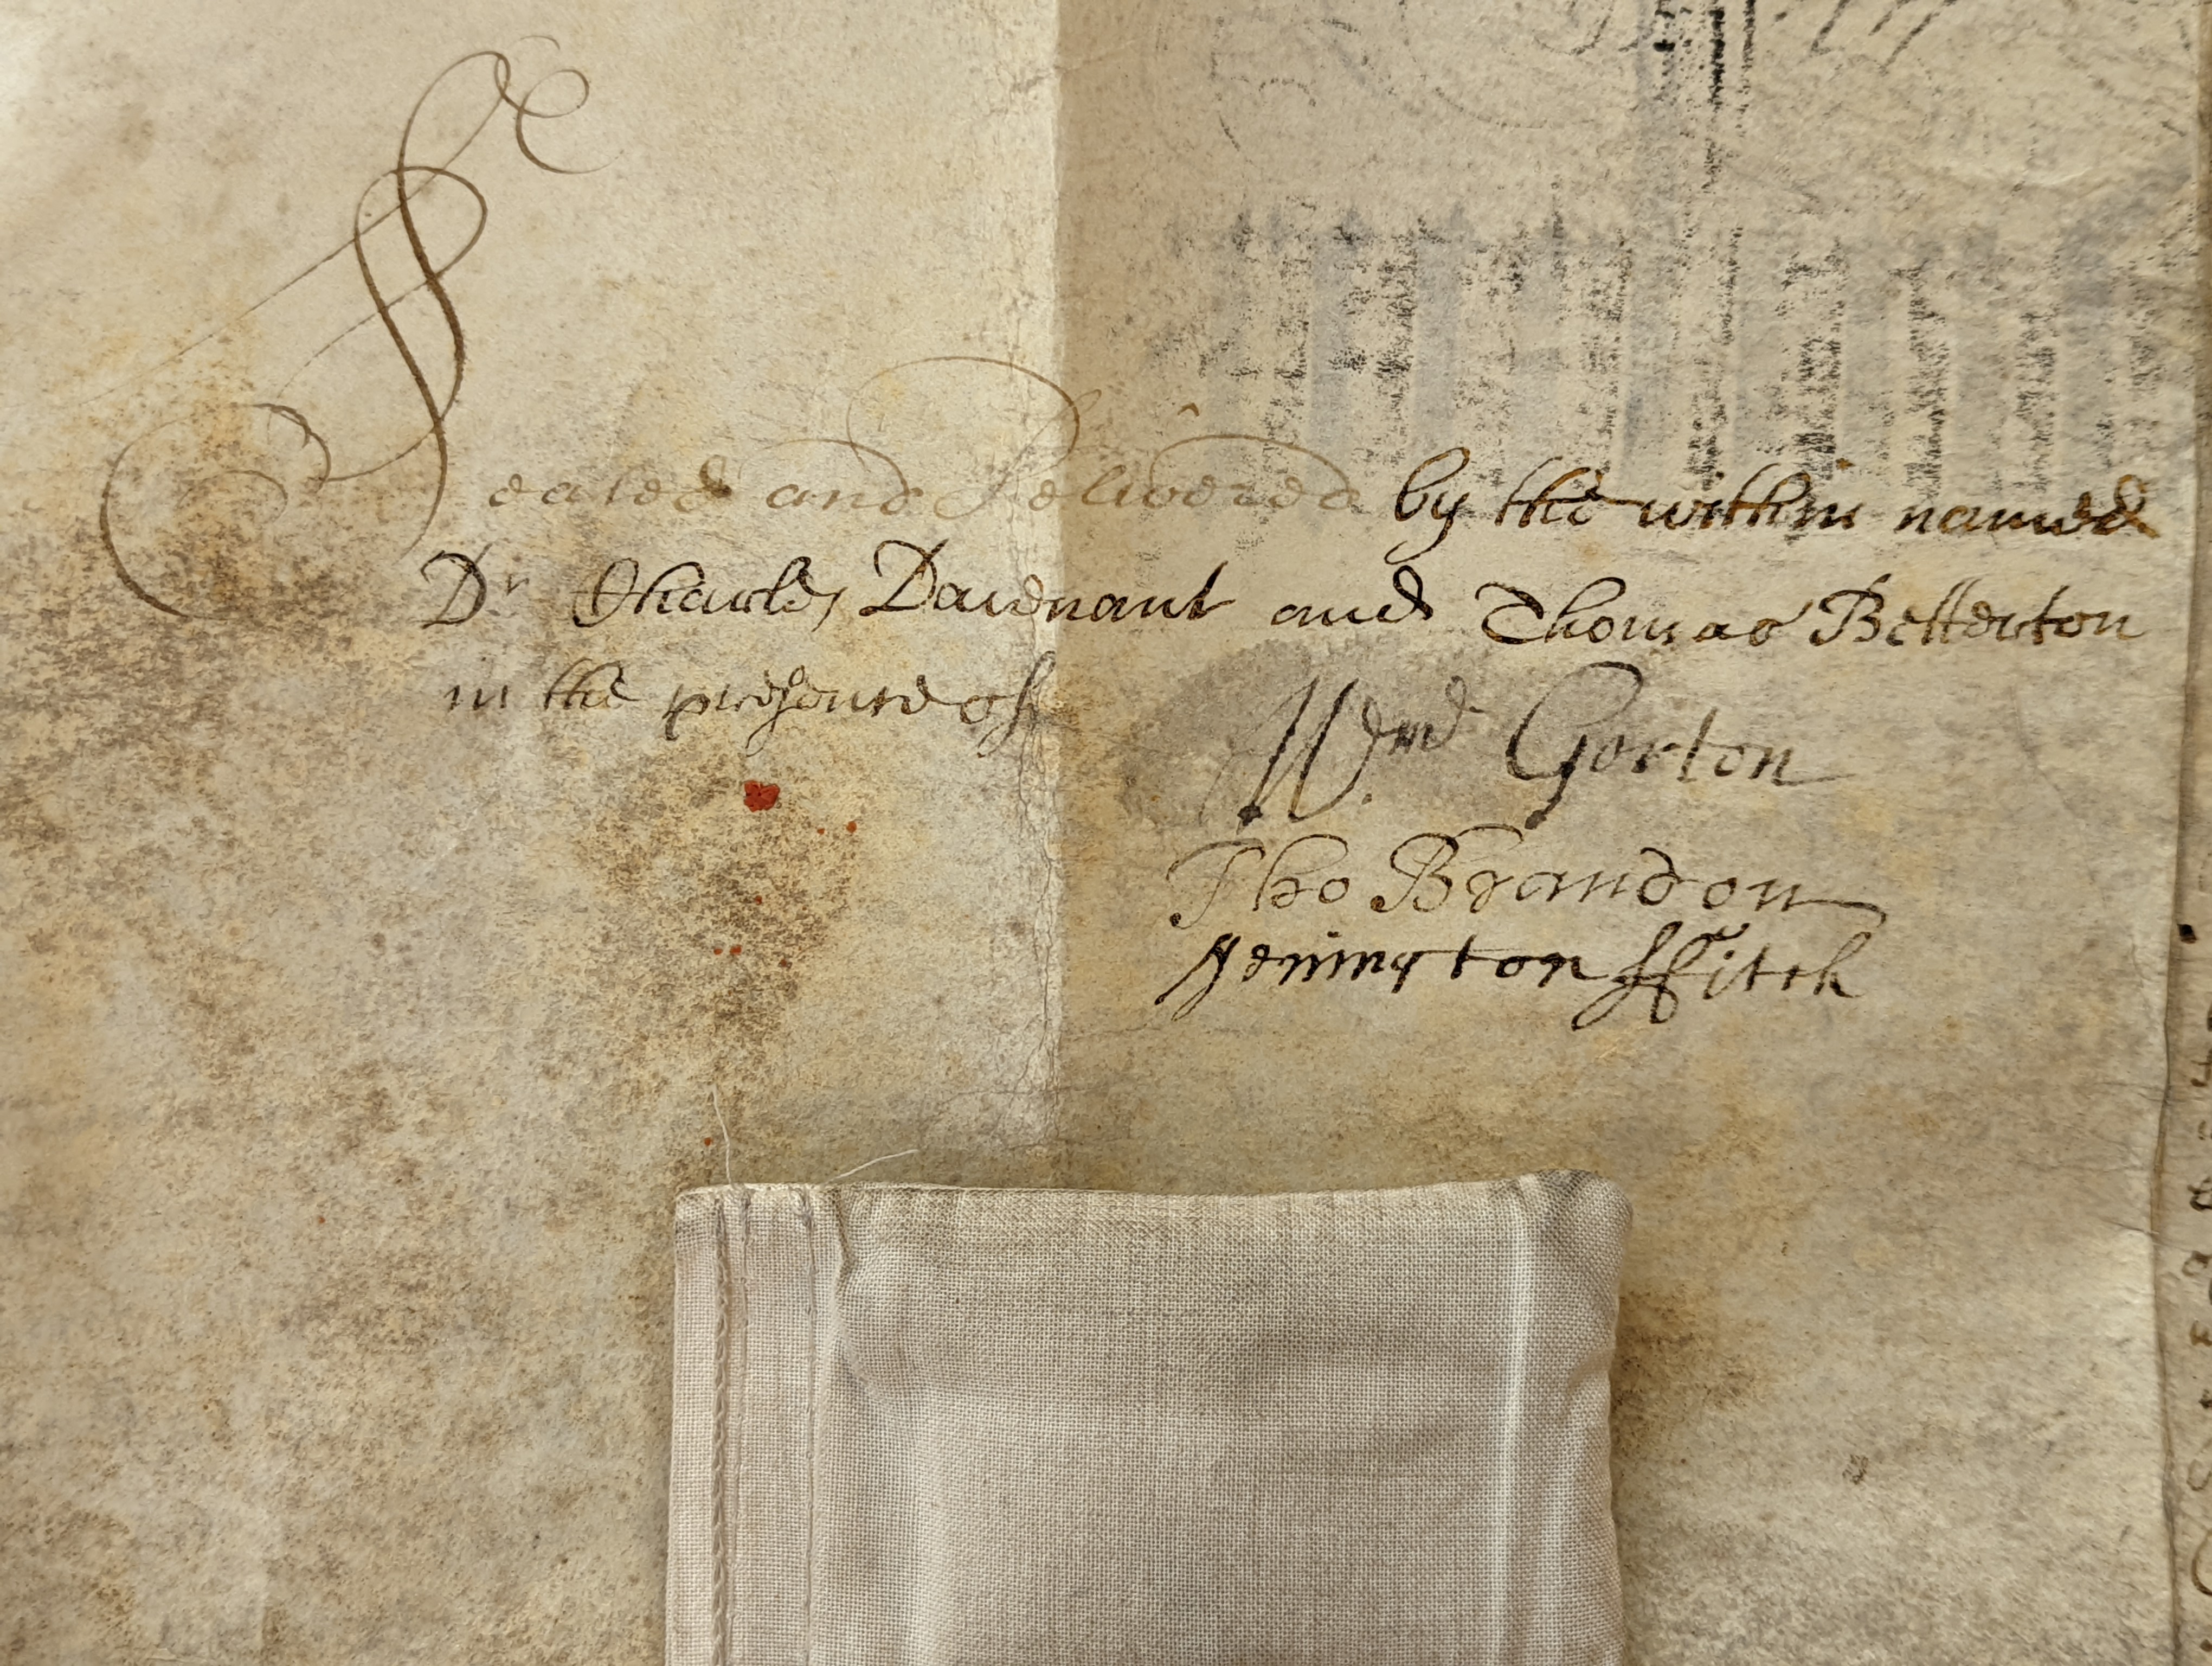 Sealed and Delivered by the within named
Dr Charles Davenant and Thomas Betterton
in the presence of
Wm Gorton
Tho Brandon
Jenington ffitch